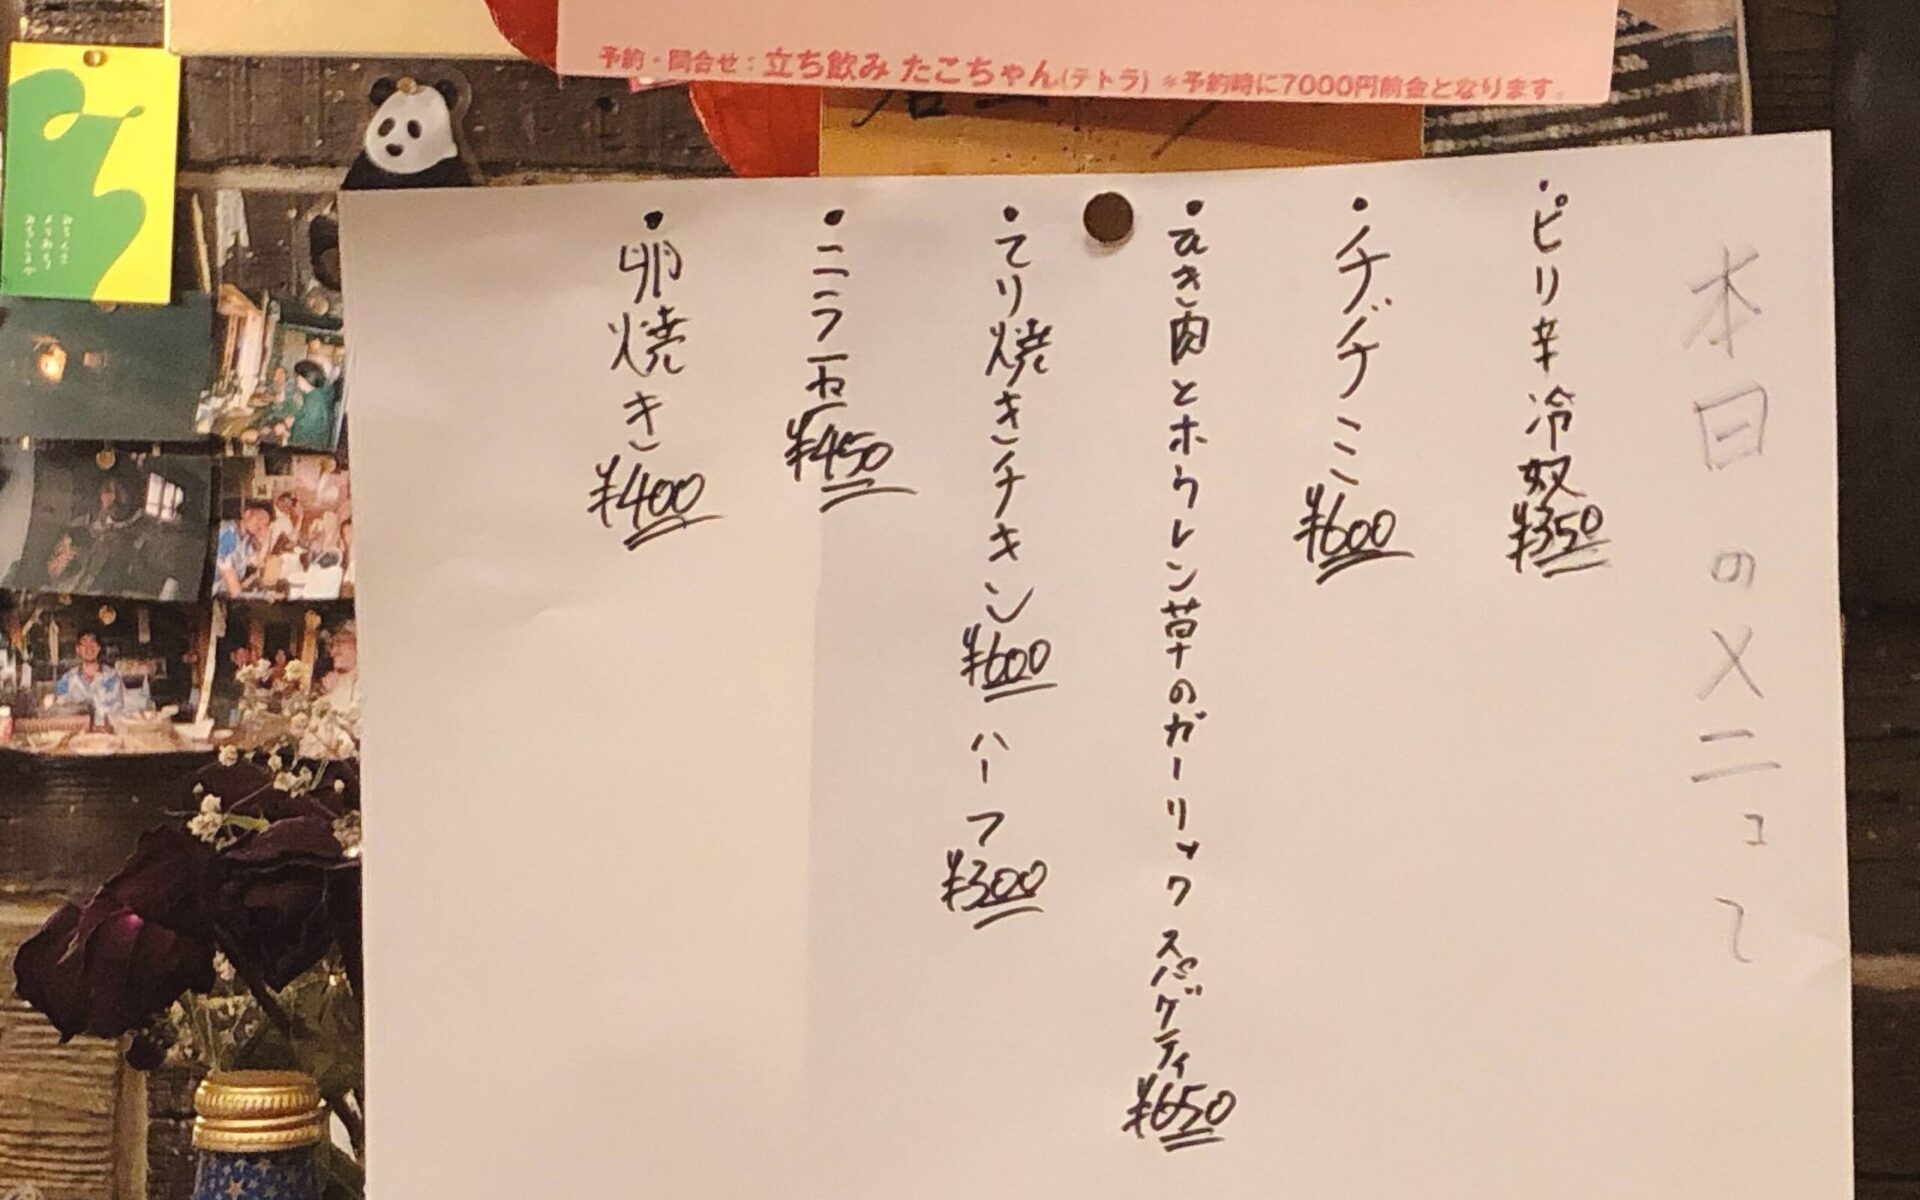 予約・問合せ：立ち飲み たこちゃん(テトラ) ＊予約時に7000円前金となります。
本日のメニュー
・ピリ辛冷奴 ¥350
・チヂミ ¥600
・ひき肉とホウレン草のガーリックスパゲティ ¥650
・てり焼きチキン ¥600 ハーフ ¥300
・ニラ玉 ¥450
・卵焼き ¥400